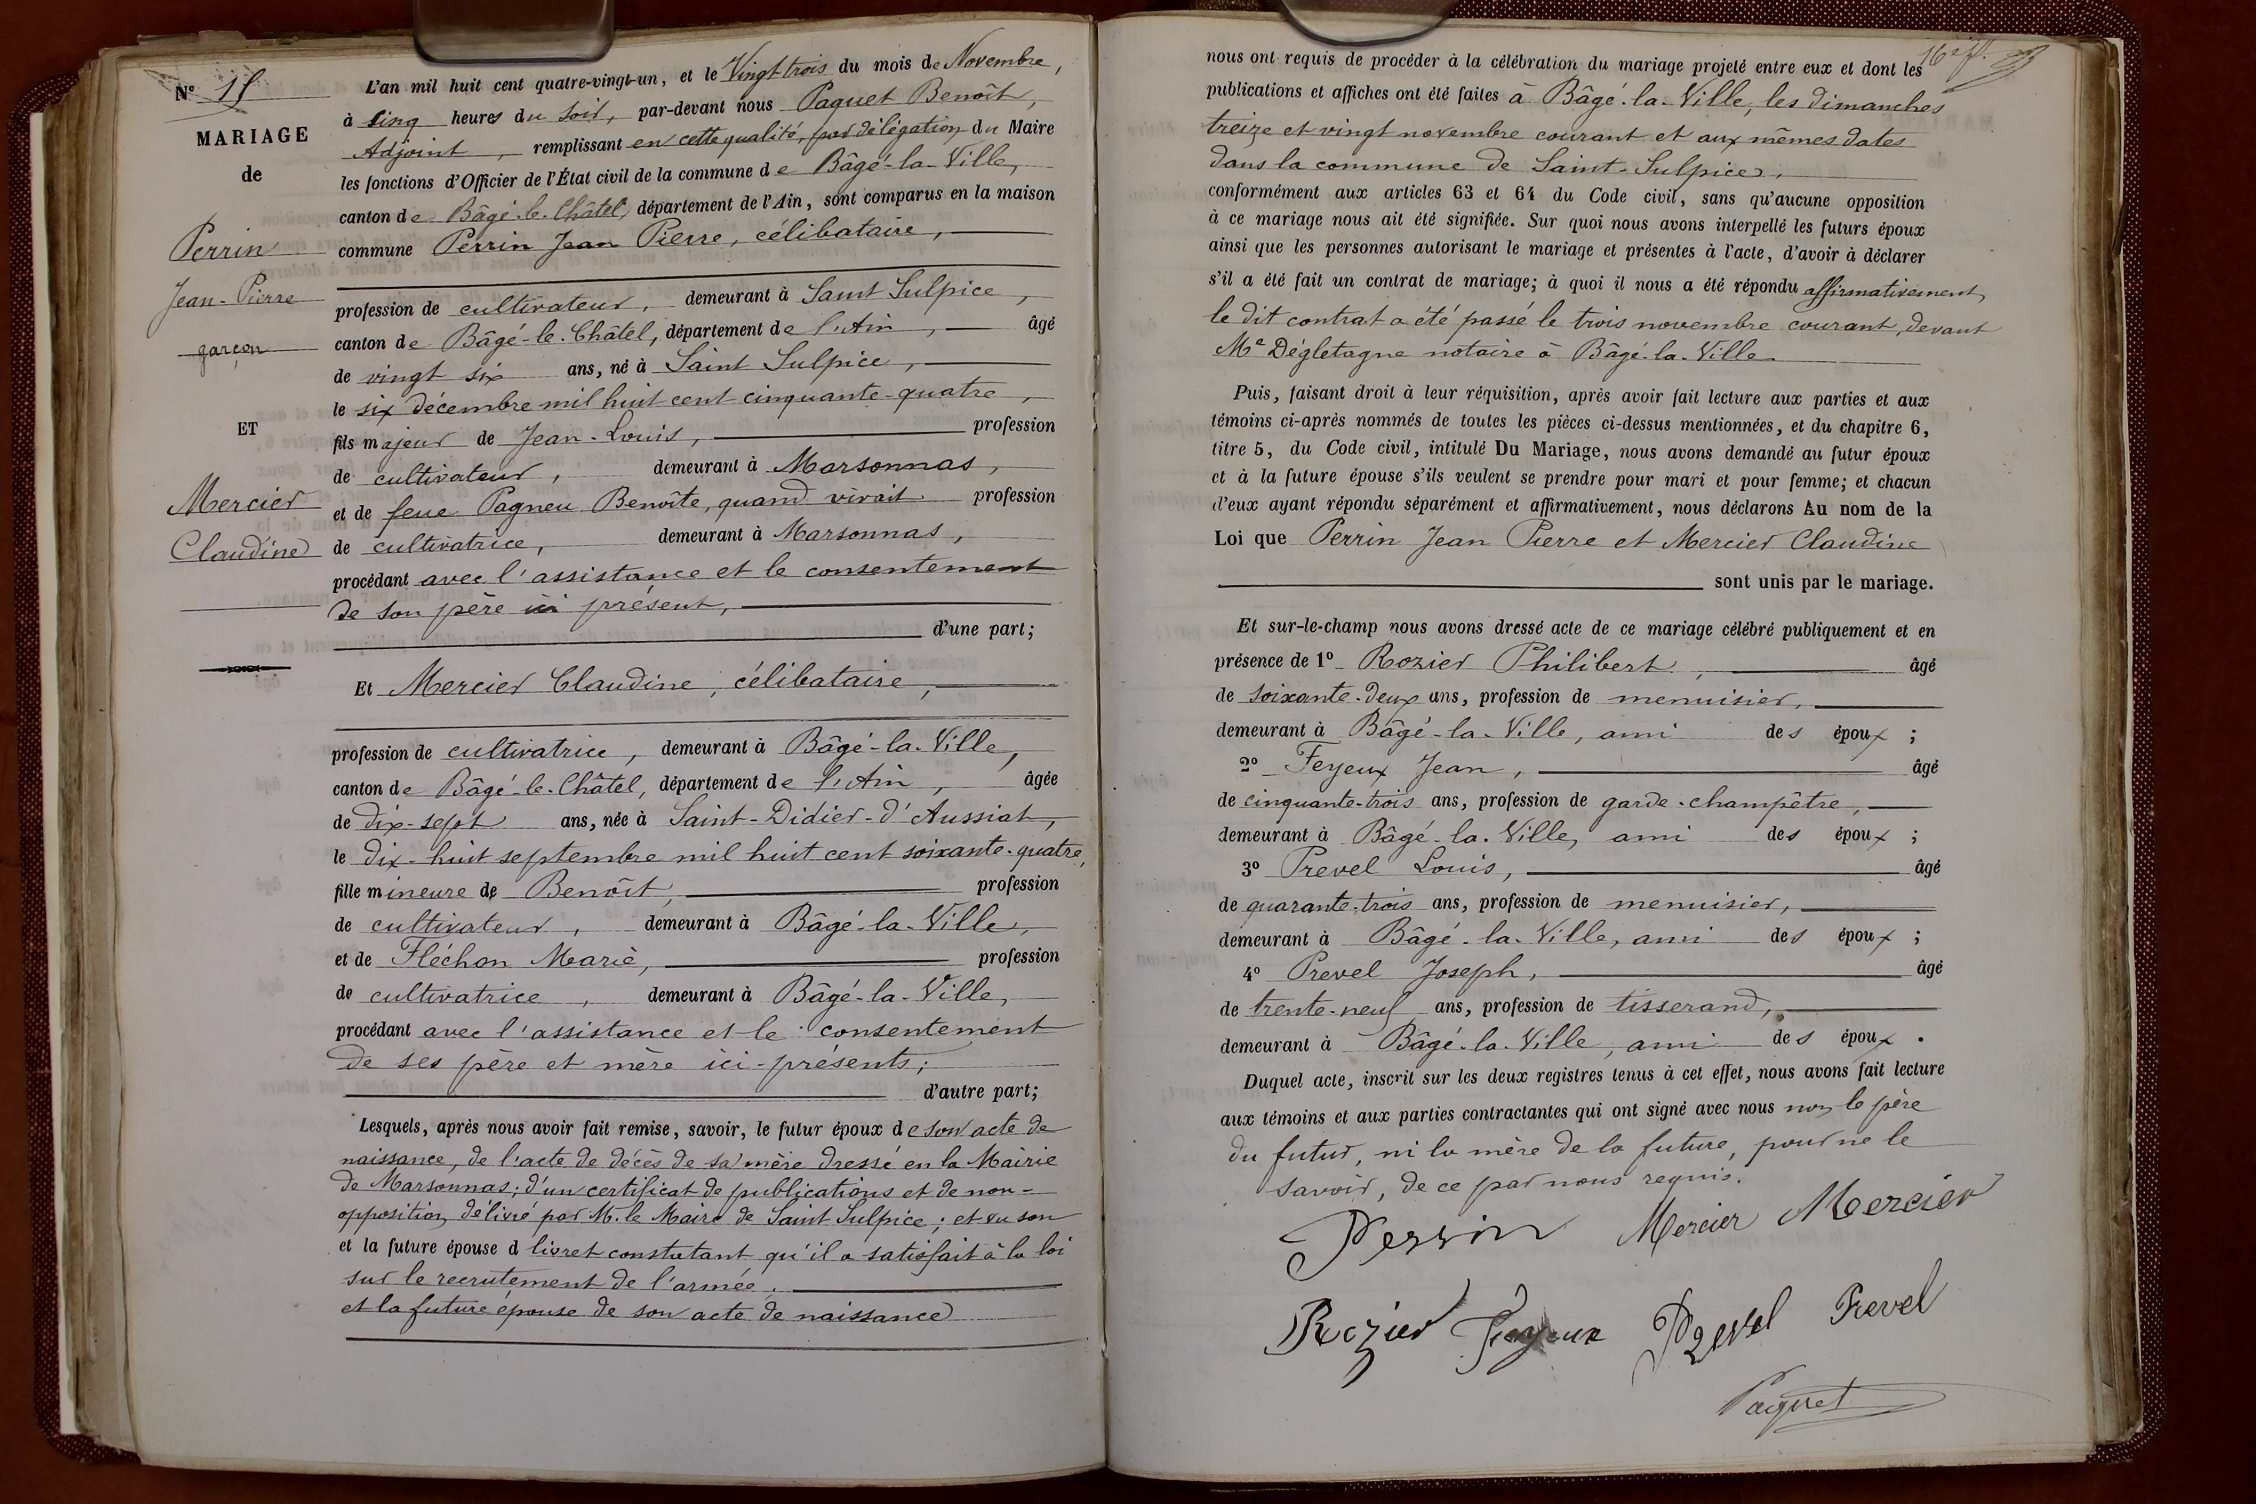 N° 15
MARIAGE
de
Perrin
Jean-Pierre
garçon
ET
Mercier
Claudine
L'an mil huit cent quatre-vingt-un, et le Vingt trois du mois de Novembre,
à cinq heures du soir, par-devant nous Paquet Benoît,
Adjoint, remplissant en cette qualité, par délégation du Maire
les fonctions d'Officier de l'État civil de la commune de Bâgé-la-Ville,
canton de Bâgé-le-Châtel, département de l'Ain, sont comparus en la maison
commune Perrin Jean Pierre, célibataire,
profession de cultivateur, demeurant à Saint Sulpice,
canton de Bâgé-le-Châtel, département de l'Ain, âgé
de vingt six ans, né à Saint Sulpice,
le six décembre mil huit cent cinquante-quatre,
fils majeur de Jean-Louis, profession
de cultivateur, demeurant à Marsonnas,
et de feue Pagneu Benoîte, quand vivait profession
de cultivatrice, demeurant à Marsonnas,
procédant avec l'assistance et le consentement
de son père ici présent,
d'une part;
Et Mercier Claudine, célibataire,
profession de cultivatrice, demeurant à Bâgé-la-Ville,
canton de Bâgé-le-Châtel, département de l'Ain, âgée
de dix-sept ans, née à Saint-Didier-d'Aussiat,
le dix-huit septembre mil huit cent soixante-quatre,
fille mineure de Benoît, profession
de cultivateur, demeurant à Bâgé-la-Ville,
et de Fléchon Marie, profession
de cultivatrice, demeurant à Bâgé-la-Ville,
procédant avec l'assistance et le consentement
de ses père et mère ici-présents;
d'autre part;
Lesquels, après nous avoir fait remise, savoir, le futur époux de son acte de
naissance, de l'acte de décès de sa mère dressé en la Mairie
de Marsonnas; d'un certificat de publications et de non-
opposition, délivré par M. le Maire de Saint Sulpice; et vu son
et la future épouse d livret constatant qu'il a satisfait à la loi
sur le recrutement de l'armée.
et la future épouse de son acte de naissance
nous ont requis de procéder à la célébration du mariage projeté entre eux et dont les
publications et affiches ont été faites à Bâgé-la-Ville, les dimanches
treize et vingt novembre courant et aux mêmes dates
dans la commune de Saint-Sulpice,
conformément aux articles 63 et 64 du Code civil, sans qu'aucune opposition
à ce mariage nous ait été signifiée. Sur quoi nous avons interpellé les futurs époux
ainsi que les personnes autorisant le mariage et présentes à l'acte, d'avoir à déclarer
s'il a été fait un contrat de mariage; à quoi il nous a été répondu affirmativement,
le dit contrat a été passé le trois novembre courant, devant
Me Dégletagne notaire à Bâgé-la-Ville
Puis, faisant droit à leur réquisition, après avoir fait lecture aux parties et aux
témoins ci-après nommés de toutes les pièces ci-dessus mentionnées, et du chapitre 6,
titre 5, du Code civil, intitulé Du Mariage, nous avons demandé au futur époux
et à la future épouse s'ils veulent se prendre pour mari et pour femme; et chacun
d'eux ayant répondu séparément et affirmativement, nous déclarons Au nom de la
Loi que Perrin Jean Pierre et Mercier Claudine
sont unis par le mariage.
Et sur-le-champ nous avons dressé acte de ce mariage célébré publiquement et en
présence de 1° Rozier Philibert, âgé
de soixante-deux ans, profession de menuisier,
demeurant à Bâgé-la-Ville, ami des époux;
2° Feyeux Jean, âgé
de cinquante-trois ans, profession de garde-champêtre,
demeurant à Bâgé-la-Ville, ami des époux;
3° Prevel Louis, âgé
de quarante-trois ans, profession de menuisier,
demeurant à Bâgé-la-Ville, ami des époux;
4° Prevel Joseph, âgé
de trente-neuf ans, profession de tisserand,
demeurant à Bâgé-la-Ville, ami des époux.
Duquel acte, inscrit sur les deux registres tenus à cet effet, nous avons fait lecture
aux témoins et aux parties contractantes qui ont signé avec nous non le père
du futur, ni la mère de la future, pour ne le
savoir, de ce par nous requis.
Perrin Mercier Mercier
Rozier Feyeux Prevel Prevel
Paquet